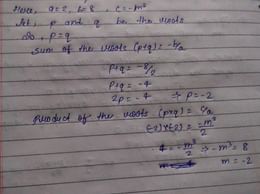 Here, a=2, b=8, c=-m³
Let, p and q be the roots
So, p=q
Sum of the roots (p+q) = -b/a
p+q = -8/2
p+q = -4
2p = -4 ∴ p=-2
Product of the roots (p×q) = c/a
(-2)×(-2) = -m³/2
4 = -m³/2 ⇒ -m³ = 8
m = -2